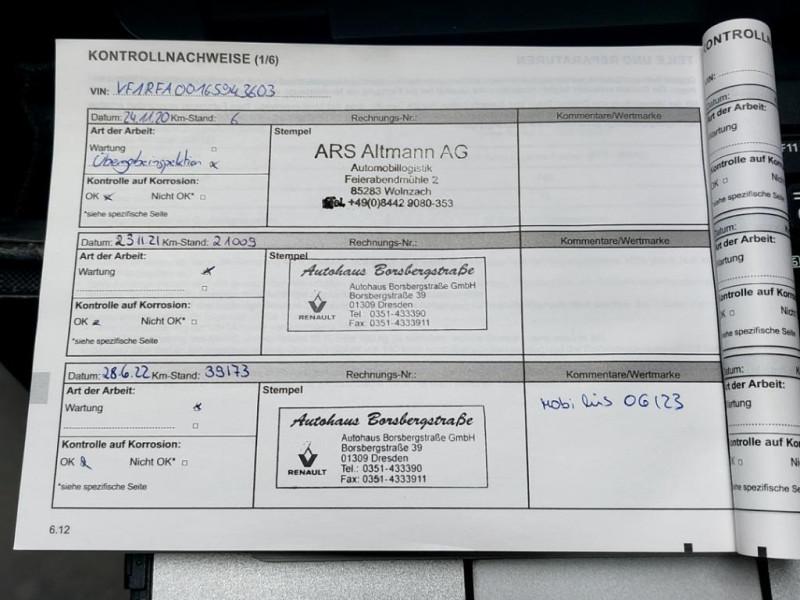 KONTROLLNACHWEISE (1/6)
VIN: VF1RFA00165943603
Datum: 24.11.20 Km-Stand: 6 Rechnungs-Nr.: Kommentare/Wertmarke
Art der Arbeit: Stempel
Wartung
Übergabeinspektion x
Kontrolle auf Korrosion:
OK x Nicht OK*
*siehe spezifische Seite
ARS Altmann AG
Automobillogistik
Feierabendmühle 2
85283 Wolnzach
Tel. +49(0)8442 9080-353
Datum: 23.11.21 Km-Stand: 21009 Rechnungs-Nr.: Kommentare/Wertmarke
Art der Arbeit: Stempel
Wartung x
Kontrolle auf Korrosion:
OK x Nicht OK*
*siehe spezifische Seite
Autohaus Borsbergstraße
Autohaus Borsbergstraße GmbH
Borsbergstraße 39
01309 Dresden
Tel. 0351-433390
Fax: 0351-4333911
RENAULT
Datum: 28.6.22 Km-Stand: 39173 Rechnungs-Nr.: Kommentare/Wertmarke
Art der Arbeit: Stempel
Wartung x
Kontrolle auf Korrosion:
OK x Nicht OK*
*siehe spezifische Seite
Autohaus Borsbergstraße
Autohaus Borsbergstraße GmbH
Borsbergstraße 39
01309 Dresden
Tel.: 0351-433390
Fax: 0351-4333911
RENAULT
Mobi bis 06/23
6.12
KONTROLLN
VIN:
Datum:
Art der Arbeit:
Wartung
Kontrolle auf Ko
OK Nic
*siehe spezifische S
Datum:
Art der Arbeit:
Wartung
ontrolle auf Kor
K Nich
he spezifische Se
tum:
t der Arbeit:
artung
ontrolle auf Ko
K Ni
he spezifische Se
F11